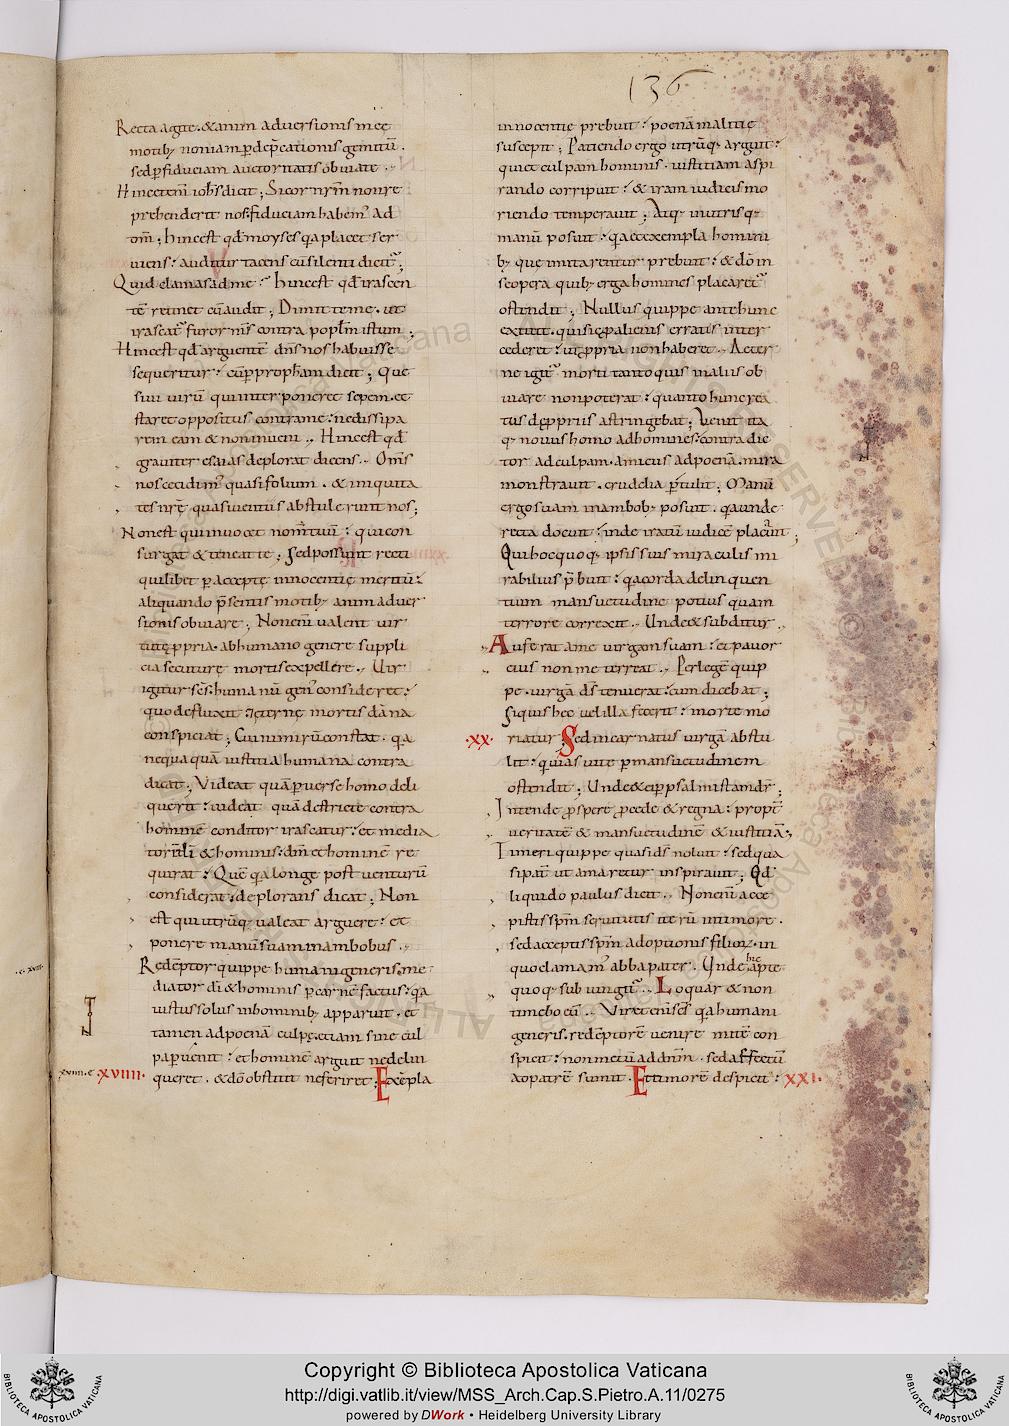 136
Recta agite. & animaduersionis meę
motib; non iam p̱ deprecationis gemitū.
sed p̱ fiduciam auctoritatis obuiate.
Hinc etenī ioħs dicit; Si cor nr̄m non re
prehenderit nos: fiduciam habem' ad
dm̄; Hinc est qd̄ moyses qa placet ser
uiens: auditur tacens cū silenti dicit';
Quid clamas ad me? hinc est qd̄ irascen
tē retinet cū audit; Dimitte me. ut
irascat' furor m's contra poplm̄ istum;
Hinc est qd̄ arguentē dn̄s nos habuisse
sequeritur: cū p̱ propħam dicit; Que
siui uirū qui interponeret sepem. et
staret oppositus contra me: ne dissipa
rem eam & non inueni. Hinc est qd̄
grauiter esaias deplorat dicens. Om̄s
nos cecidim' quasi folium. & iniquita
tes nrę quasi uentus abstulerunt nos;
Non est qui inuocet nom̄ tuū: qui con
surgat & teneat te; Sed possunt recti
quilibet p̱ acceptę innocentię meritū:
aliquando p̄sentis motib; animaduer
sionis obuiare; Non enī ualent uir
tute p̱pria. ab humano genere suppli
cia secuturę mortis expellere. Uir
igitur sc̄s: humanū gen' consideret:
quo defluxit. Ęternę mortis dāna
conspiciat; Cui nimirū constat. qa
nequaquā iustitia humana contra
dicat; Videat quā p̱uerse homo deli
querit: uideat quā destricte contra
hominē conditor irascatur: et media
torē dī & hominis: dm̄ et hominē re
quirat: Quē qa longe post uenturū
considerat: deplorans dicat; Non
est qui utrūq; ualeat arguere: et
ponere manū suam in ambobus.
Redēptor quippe humani generis. me
diator dī & hominis p̱ carnē factus: qa
iustus solus in hominib; apparuit. et
tamen ad poenā culpę. etiam sine cul
pa p̱uenit: et hominē arguit ne delin
queret. & dō obstitit ne feriret; Exēpla
.c. xviii.
xviiii. c. XVIIII.
innocentię prebuit: poenā malitię
suscepit; Patiendo ergo utrūq; arguit:
qui et culpam hominis. iustitiam aspi
rando corripuit: & iram iudicis mo
riendo temperauit; Atq; in utrisq;
manū posuit: qa et exempla homini
b; quę imitarentur prebuit: & dō in
se opera quib; erga homines placaret'
ostendit; Nullus quippe ante hunc
extitit. qui sic p̱ alienis erratis inter
cederet: ut p̱pria non haberet. Aeter
nę igit' morti tanto quis in aliis ob
uiare non poterat: quanto hunc rea
tus de p̱priis astringebat; Venit ita
q; nouus homo ad homines: contradic
tor ad culpam. amicus ad poenā. mira
monstrauit. crudelia p̱tulit; Manū
ergo suam in ambob; posuit. qa unde
recta docuit: inde iratū iudicē placauit;
Qui hoc quoq; ipsis suis miraculis mi
rabilius p̄buit: qa corda delinquen
tium mansuetudine potius quam
terrore correxit. Unde & subditur.
Auferat a me uirgam suam: et pauor
eius non me terreat. Per legē quip
pe. uirgā dś tenuerat: cum dicebat;
Si quis hec uel illa fecerit: morte mo
.XX. riatur; Sed incarnatus uirgā abstu
lit: qui uias uitę p̱ mansuetudinem
ostendit; Unde & ei p̱ psalmistam dr̄;
Intende prospere procede & regna: propt'
ueritatē & mansuetudinē & iustitiā;
Timeri quippe quasi dś noluit: sed qua
si pat' ut amaretur inspirauit; Qd̄
liquido paulus dicit. Non enī acce
pistis spm̄ seruitutis iterū in timore.
sed accepistis spm̄ adoptionis filior. in
quo clamam' abba pater. Unde hic apte
quoq; subiungit'. Loquar & non
timebo eū. Vir etenī sc̄s qa humani
generis. redēptorē uenire mitē con
spicit: non metū ad dnm̄. sed affectū
ad patrē sumit. Et timorē despicit: XXI.
Copyright © Biblioteca Apostolica Vaticana
http://digi.vatlib.it/view/MSS_Arch.Cap.S.Pietro.A.11/0275
powered by DWork • Heidelberg University Library
BIBLIOTECA APOSTOLICA VATICANA
BIBLIOTECA APOSTOLICA VATICANA